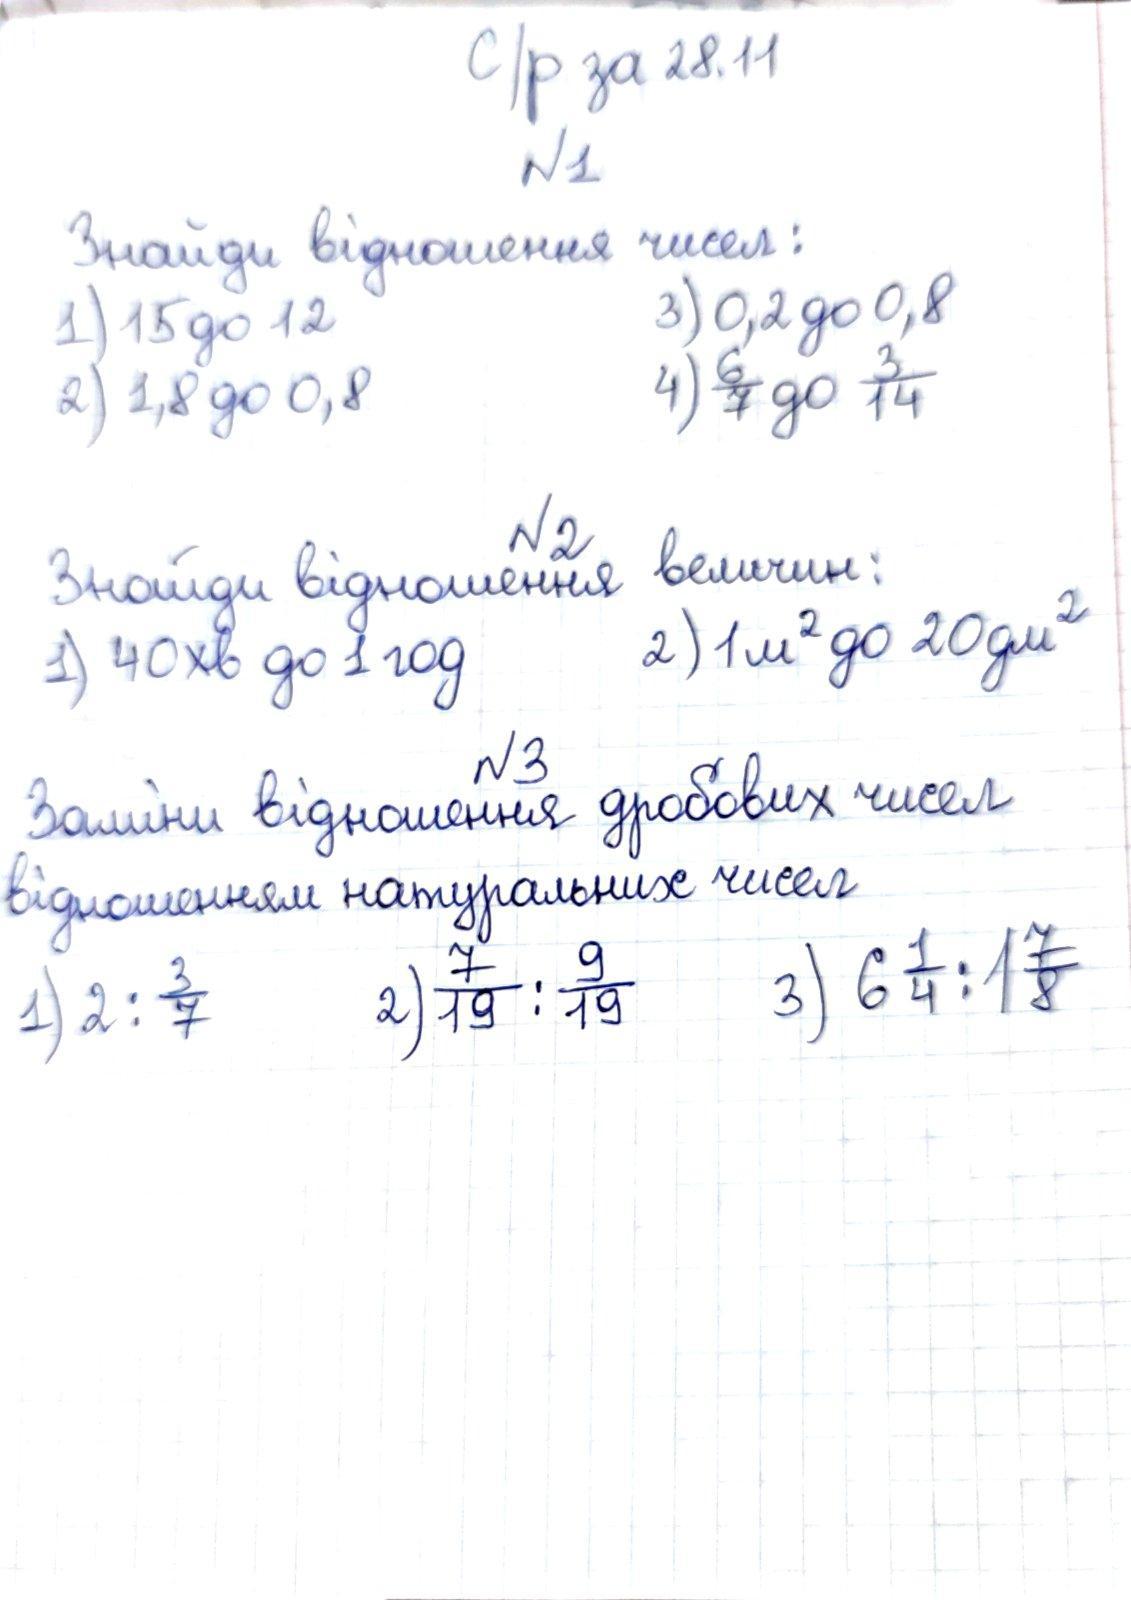 С/р за 28.11
№1
Знайди відношення чисел:
1) 15 до 12 3) 0,2 до 0,8
2) 1,8 до 0,8 4) 6/7 до 3/14
№2
Знайди відношення величин:
1) 40 хв до 1 год 2) 1 м² до 20 дм²
№3
Заміни відношення дробових чисел
відношенням натуральних чисел
1) 2 : 3/7 2) 7/19 : 9/19 3) 6 1/4 : 1 7/8